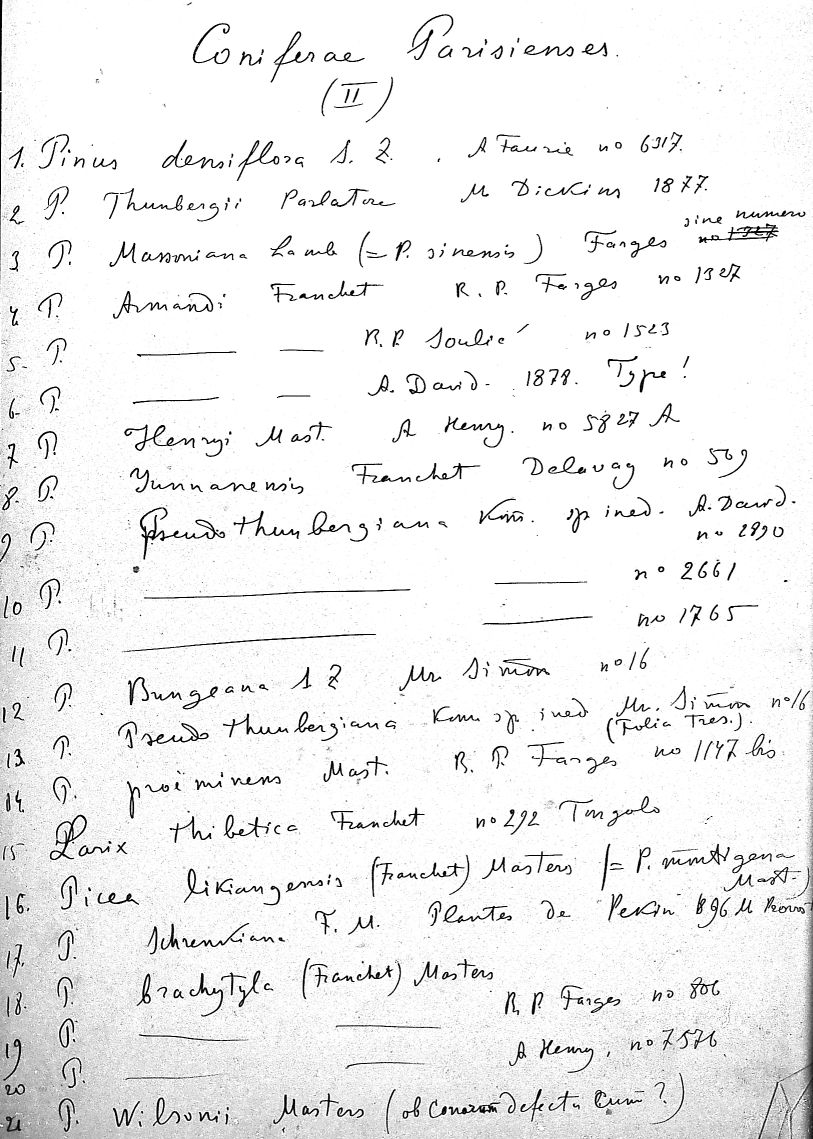 Coniferae Parisienses.
(II)
1. Pinus densiflora S. Z. . A Faurie no 6317.
2 P. Thunbergii Parlatore M Dickins 1877.
sine numero
3 P. Massoniana Lamb (= P. sinensis) Farges no 1327
4 P. Armandi Franchet R. P. Farges no 1327
5. P. —— — R. P. Soulié no 1523
6. P. —— — A. David. 1878. Type!
7 P. Henryi Mast. A Henry. no 5827 A
8. P. Yunnanensis Franchet Delavay no 509
9 P. Pseudothunbergiana Kom. sp ined. A. David.
no 2890
10 P. —— —— no 2661
11 P. —— —— no 1765
12 P. Bungeana S Z Mr. Simon no 16
13. P. Pseudothunbergiana Kom sp ined Mr. Simon no 16
(Folia Tres.).
14. P. proëminens Mast. R. P. Farges no 1147 bis.
15 Larix thibetica Franchet no 292 Tongolo
16. Picea likiangensis (Franchet) Masters (= P. montigena
Mast.)
17. P. Schrenkiana F. M. Plantes de Pekin 896 M Provost
18. P. brachytyla (Franchet) Masters
R. P. Farges no 806
19 P. —— ——
A Henry, no 7576
20 P. —— ——
21 P. Wilsonii Masters (ob conorum defectu cum ?)